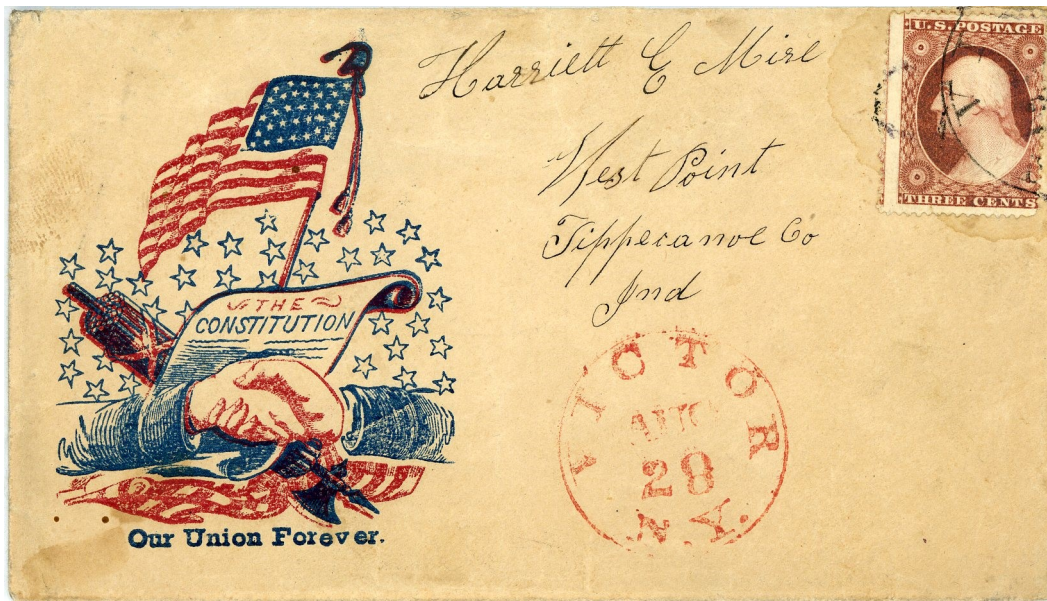 Harriett E Mire
West Point
Tippecanoe Co
Ind
U.S. POSTAGE
THREE CENTS
THE
CONSTITUTION
Our Union Forever.
VICTOR
AUG
28
N.Y.